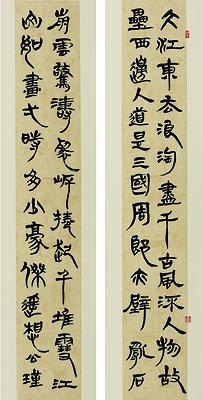 大江東去浪淘盡千古風流人物故
壘西邊人道是三國周郎赤壁亂石
崩雲驚濤裂岸捲起千堆雪江
山如畫弌時多少豪傑遙想公瑾